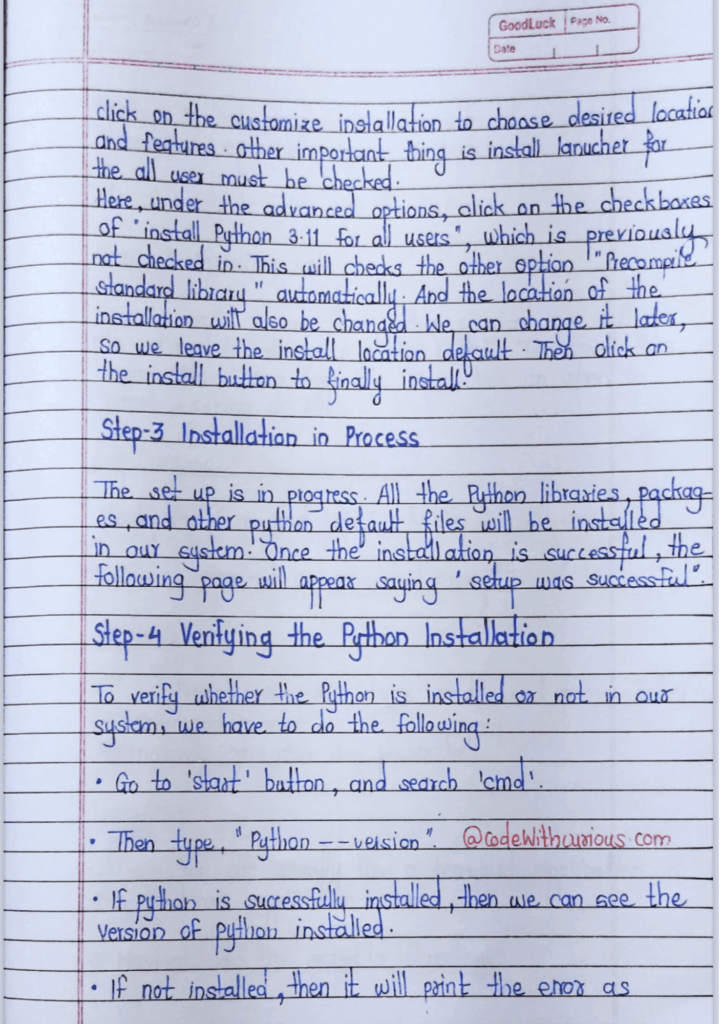 GoodLuck Page No.
Date
click on the customize installation to choose desired location
and features. other important thing is install lanucher for
the all user must be checked.
Here, under the advanced options, click on the checkboxes
of "install Python 3.11 for all users", which is previously
not checked in. This will checks the other option "Precompile
standard library" automatically. And the location of the
installation will also be changed. We can change it later,
so we leave the install location default. Then click on
the install button to finally install.
Step-3 Installation in Process
The set up is in progress. All the Python libraries, packag-
es, and other python default files will be installed
in our system. Once the installation is successful, the
following page will appear saying 'setup was successful".
Step-4 Verifying the Python Installation
To verify whether the Python is installed or not in our
system, we have to do the following:
• Go to 'start' button, and search 'cmd'.
• Then type, "Python --version". @codeWithcurious.com
• If python is successfully installed, then we can see the
version of python installed.
• If not installed, then it will print the error as